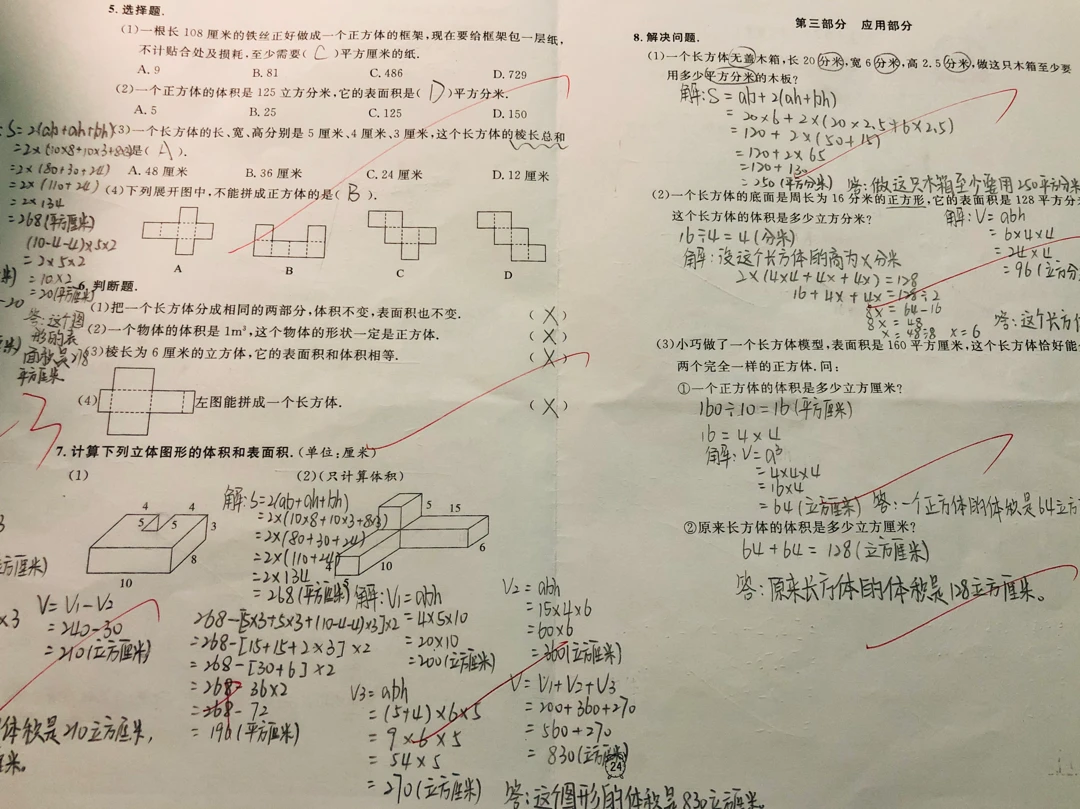 5. 选择题.
(1)一根长 108 厘米的铁丝正好做成一个正方体的框架,现在要给框架包一层纸,
不计贴合处及损耗,至少需要( C )平方厘米的纸.
A. 9 B. 81 C. 486 D. 729
(2)一个正方体的体积是 125 立方分米,它的表面积是( D )平方分米.
A. 5 B. 25 C. 125 D. 150
(3)一个长方体的长、宽、高分别是 5 厘米、4 厘米、3 厘米,这个长方体的棱长总和
是( A ).
A. 48 厘米 B. 36 厘米 C. 24 厘米 D. 12 厘米
(4)下列展开图中,不能拼成正方体的是( B ).
A B C D
S=2(ab+ah+bh)
=2×(10×8+10×3+8×3)
=2×(80+30+24)
=2×(110+24)
=2×134
=268(平方厘米)
(10-4-4)×5×2
=2×5×2
=10×2
=20(平方厘米)
答:这个图
形的表
面积是278
平方厘米
6. 判断题.
(1)把一个长方体分成相同的两部分,体积不变,表面积也不变. (X)
(2)一个物体的体积是 1m³,这个物体的形状一定是正方体. (X)
(3)棱长为 6 厘米的立方体,它的表面积和体积相等. (X)
(4) 左图能拼成一个长方体. (X)
7. 计算下列立体图形的体积和表面积.(单位:厘米)
(1)
4 4
5 5 3
8
10
V=V1-V2
=240-30
=210(立方厘米)
体积是210立方厘米,
厘米。
(2)(只计算体积)
5 15
6
10
4
5
解:S=2(ab+ah+bh)
=2×(10×8+10×3+8×3)
=2×(80+30+24)
=2×(110+24)
=2×134
=268(平方厘米)
268-[5×3+5×3+(10-4-4)×3]×2
=268-[15+15+2×3]×2
=268-[30+6]×2
=268-36×2
=268-72
=196(平方厘米)
解:V1=abh
=4×5×10
=20×10
=200(立方厘米)
V3=abh
=(5+4)×6×5
=9×6×5
=54×5
=270(立方厘米)
V2=abh
=15×4×6
=60×6
=360(立方厘米)
V=V1+V2+V3
=200+360+270
=560+270
=830(立方厘米)
答:这个图形的体积是830立方厘米。
24
第三部分 应用部分
8. 解决问题.
(1)一个长方体无盖木箱,长 20 分米,宽 6 分米,高 2.5 分米,做这只木箱至少要
用多少平方分米的木板?
解:S=ab+2(ah+bh)
=20×6+2×(20×2.5+6×2.5)
=120+2×(50+15)
=120+2×65
=120+130
=250(平方分米)
答:做这只木箱至少要用250平方分米
(2)一个长方体的底面是周长为 16 分米的正方形,它的表面积是 128 平方分
这个长方体的体积是多少立方分米?
16÷4=4(分米)
解:设这个长方体的高为x分米
2×(4×4+4x+4x)=128
16+4x+4x=128÷2
8x=64-16
8x=48
x=48÷8 x=6
解:V=abh
=6×4×4
=24×4
=96(立方分
答:这个长方体
(3)小巧做了一个长方体模型,表面积是 160 平方厘米,这个长方体恰好能
两个完全一样的正方体.问:
①一个正方体的体积是多少立方厘米?
160÷10=16(平方厘米)
16=4×4
解:V=a³
=4×4×4
=16×4
=64(立方厘米) 答:一个正方体的体积是64立方
②原来长方体的体积是多少立方厘米?
64+64=128(立方厘米)
答:原来长方体的体积是128立方厘米。